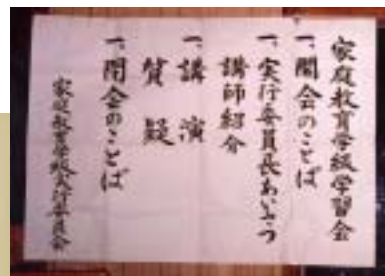 家庭教育学級学習会
一、開会のことば
一、実行委員長あいさつ
講師紹介
一、講演
質疑
一、閉会のことば
家庭教育学級実行委員会